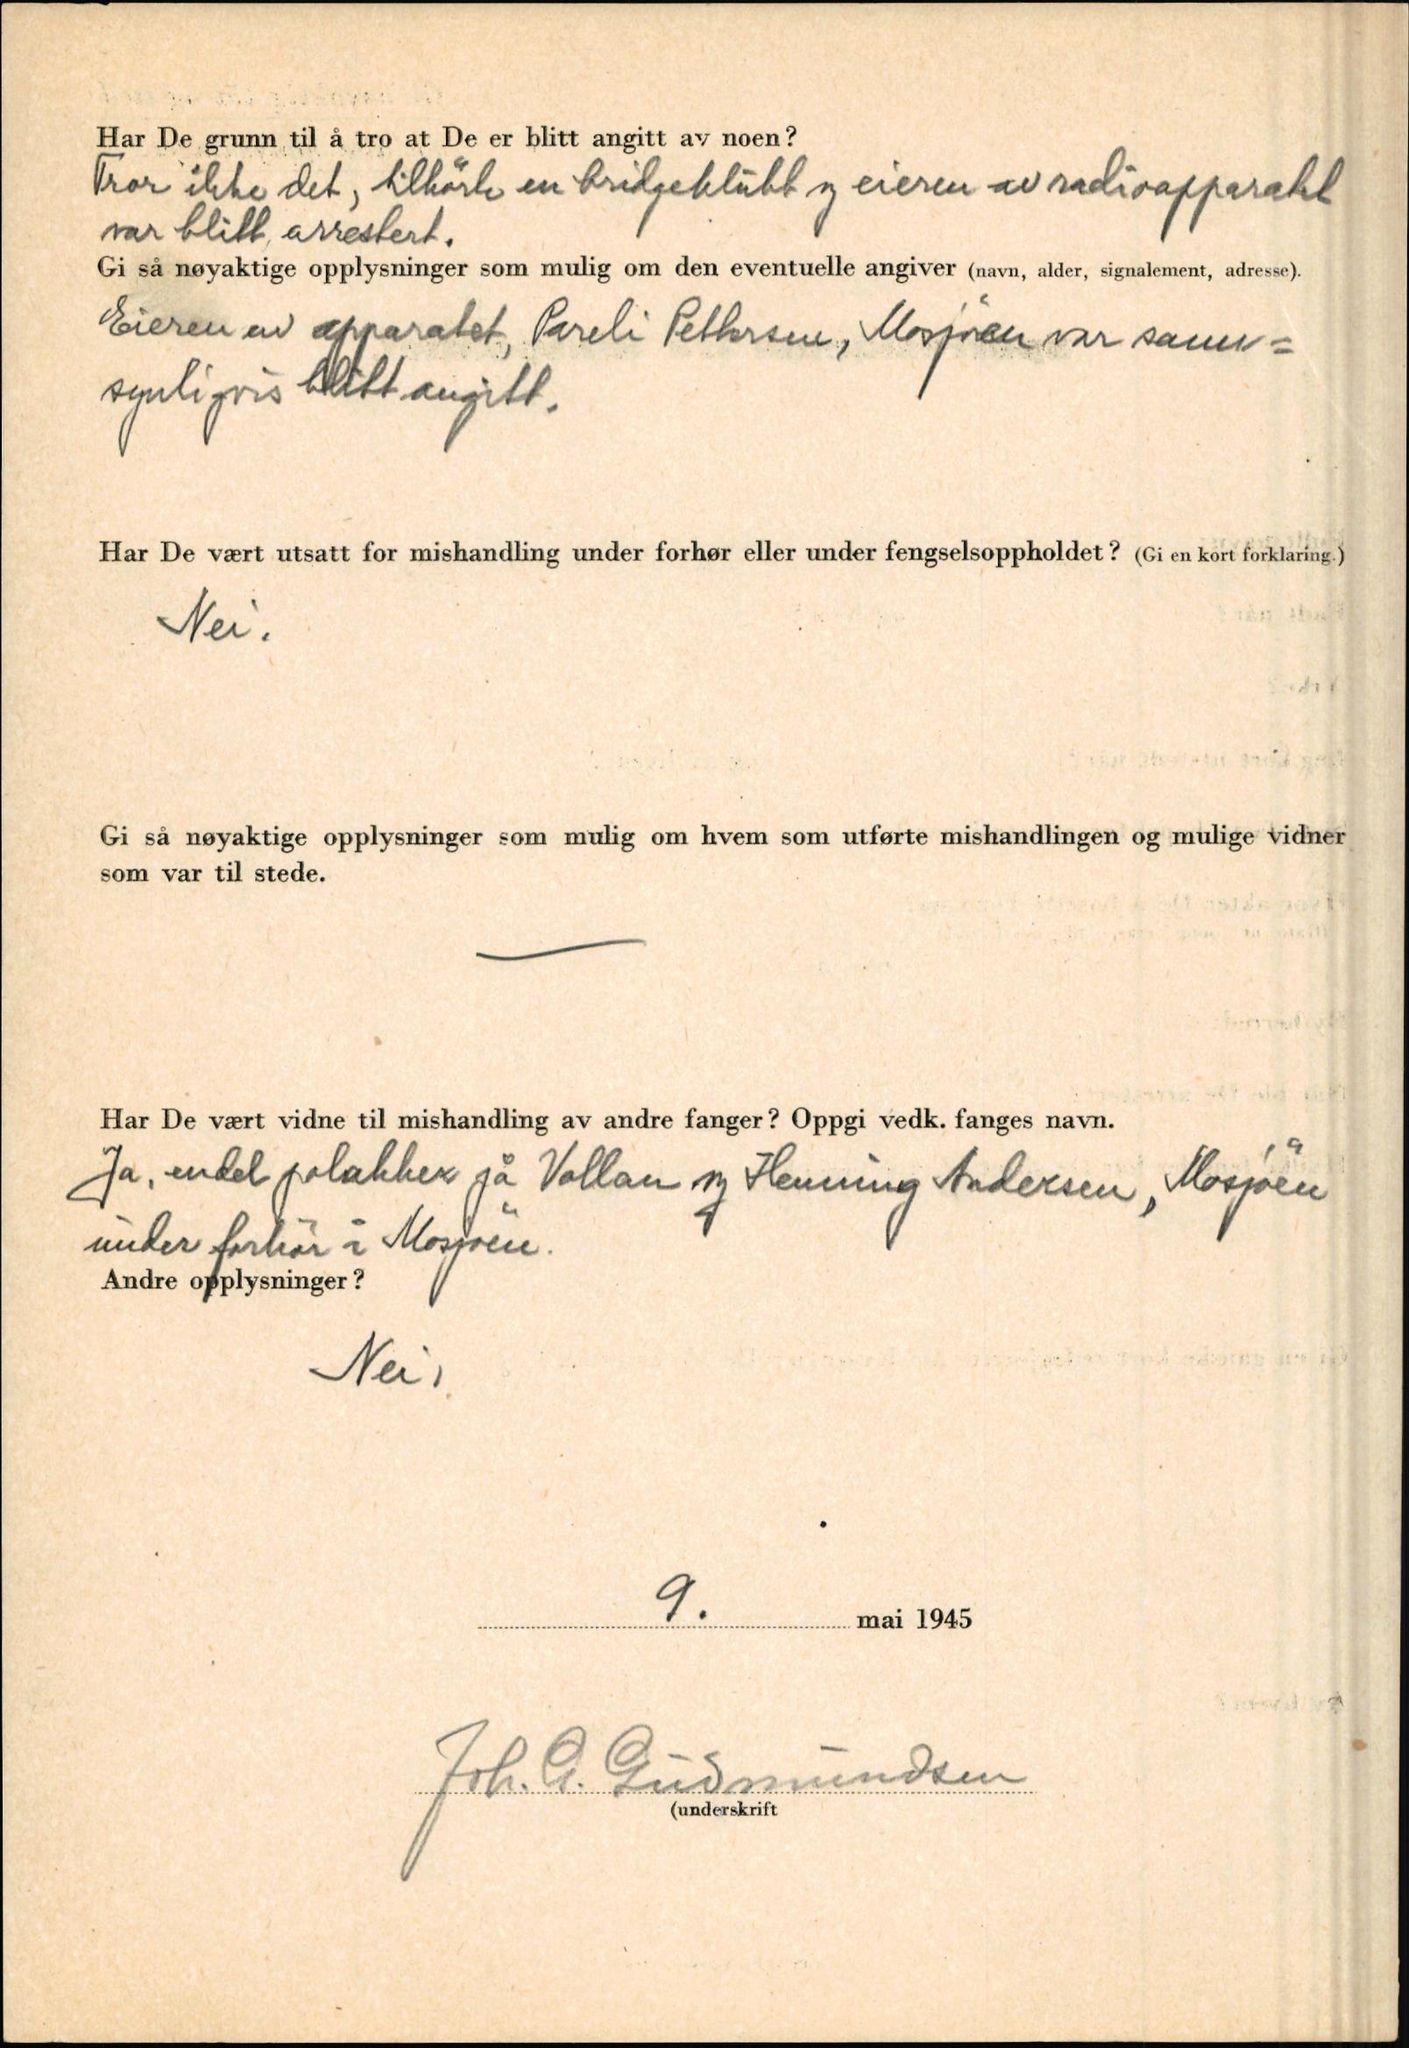 Har De grunn til å tro at De er blitt angitt av noen?
Tror ikke det, tilhörte en bridgeklubb og eieren av radioapparatet
var blitt arrestert.
Gi så nøyaktige opplysninger som mulig om den eventuelle angiver (navn, alder, signalement, adresse).
Eieren av apparatet, Pareli Pettersen, Mosjöen var sann=
synligvis blitt angitt.
Har De vært utsatt for mishandling under forhør eller under fengselsoppholdet? (Gi en kort forklaring.)
Nei.
Gi så nøyaktige opplysninger som mulig om hvem som utførte mishandlingen og mulige vidner
som var til stede.
Har De vært vidne til mishandling av andre fanger? Oppgi vedk. fanges navn.
Ja, endel polakker på Vollan og Henning Andersen, Mosjöen
under forhör i Mosjöen.
Andre opplysninger?
Nei.
9. mai 1945
Joh. G. Gudmundsen
(underskrift